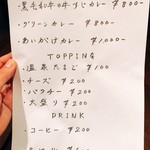 黒毛和牛すじカレー ¥800-
・グリーンカレー ¥800-
・あいがけカレー ¥1,000-
TOPPING
・温泉たまご ¥100
・チーズ ¥200
・パクチー ¥200
・大盛り ¥200
DRINK
・コーヒー ¥200
¥200